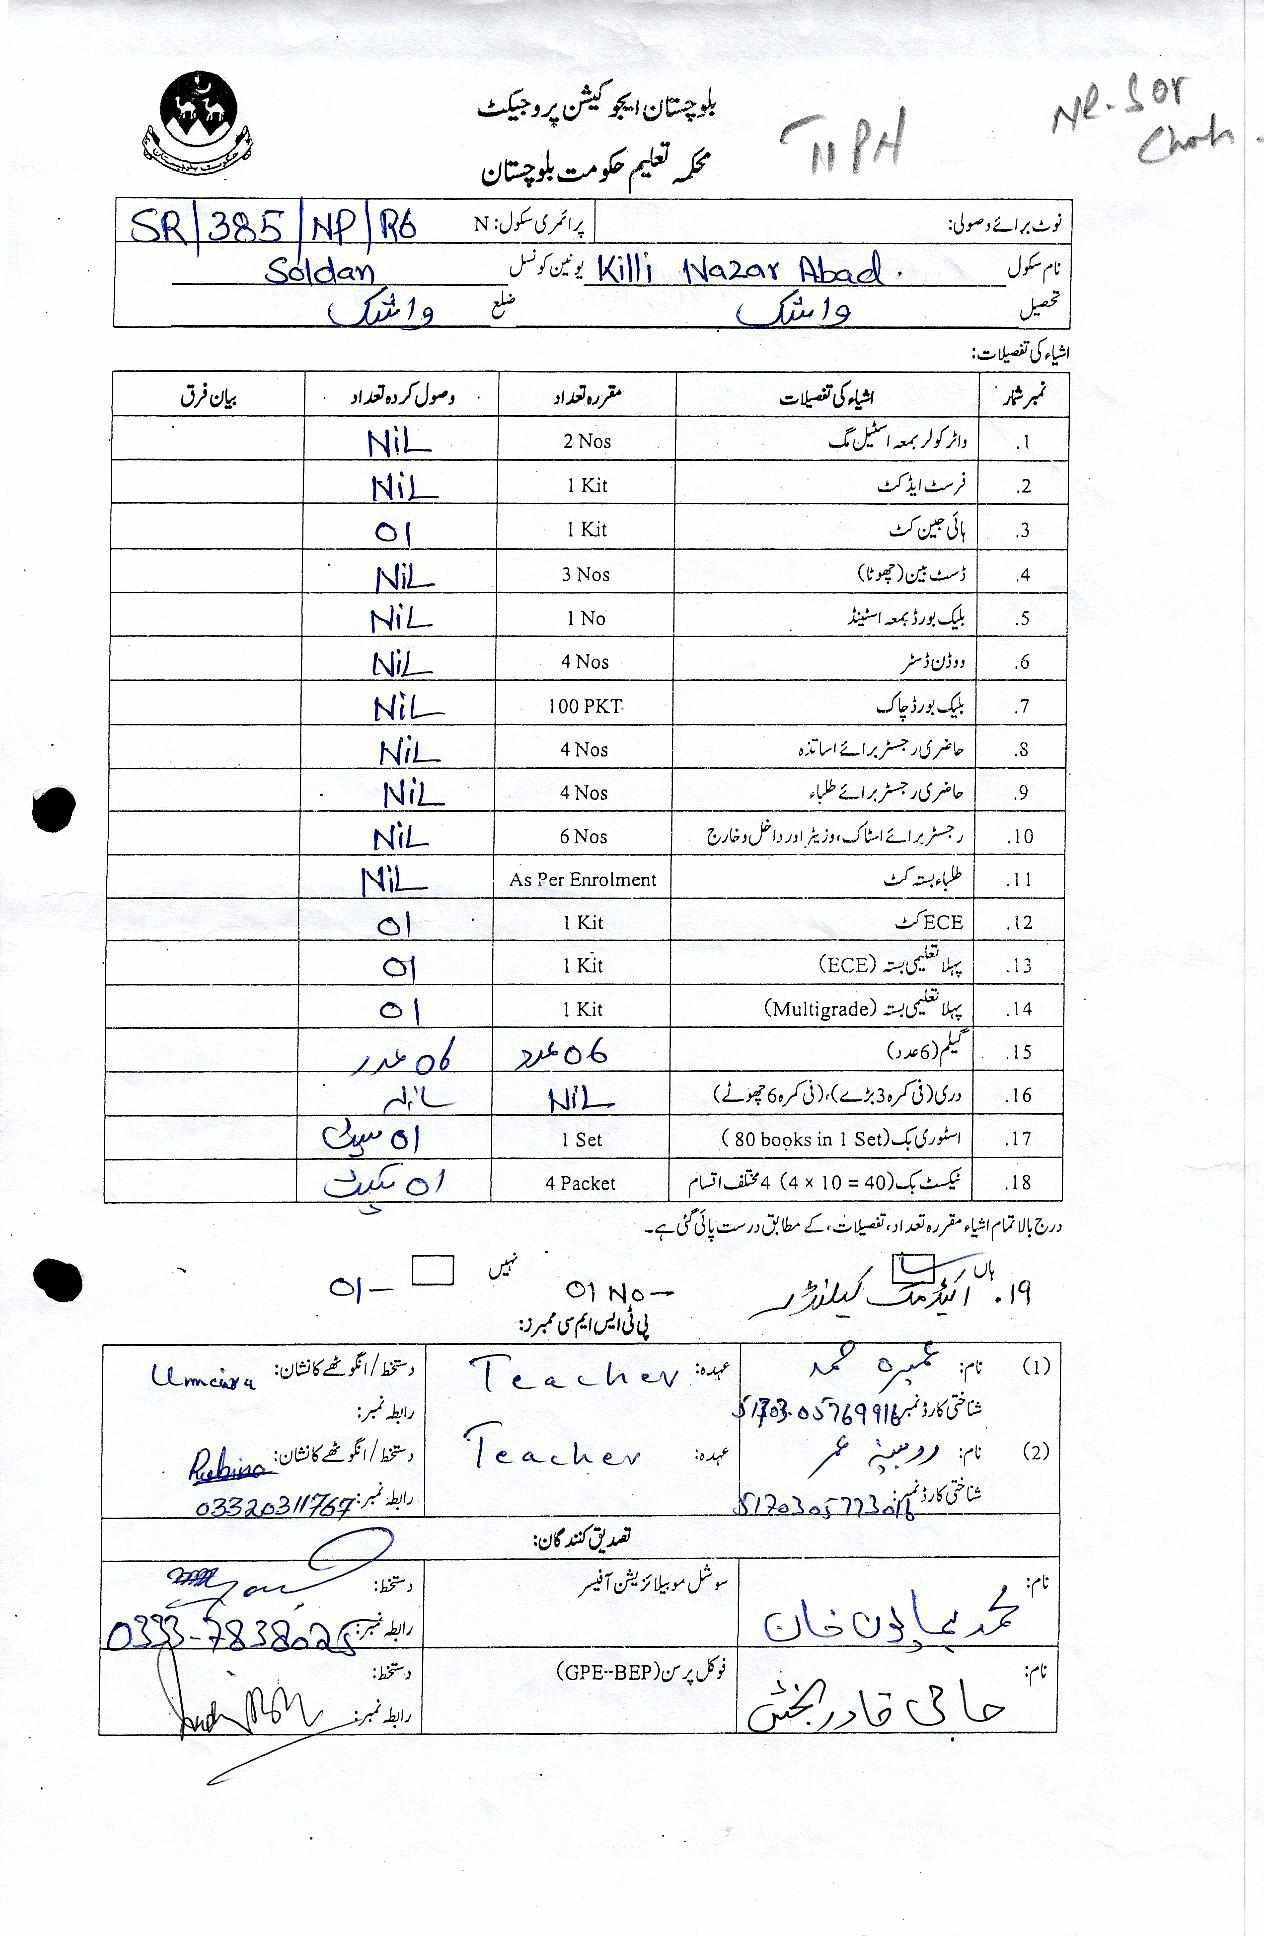 بلوچستان ایجوکیشن پروجیکٹ
محکمہ تعلیم حکومت بلوچستان
TIPH
NR. Sor
نوٹ برائے وصولی: پرائمری سکول: N SR/385/NP/R6
نام سکول Killi Nazar Abad. یونین کونسل Soldan
تحصیل واشک ضلع واشک
اشیاء کی تفصیلات:
نمبر شمار اشیاء کی تفصیلات مقررہ تعداد وصول کردہ تعداد بیان فرق
1. واٹر کولر بمعہ اسٹیل مگ 2 Nos NiL
2. فرسٹ ایڈ کٹ 1 Kit NiL
3. ہائی جین کٹ 1 Kit 01
4. ڈسٹ بین (چھوٹا) 3 Nos NiL
5. بلیک بورڈ بمعہ اسٹینڈ 1 No NiL
6. ووڈن ڈسٹر 4 Nos NiL
7. بلیک بورڈ چاک 100 PKT NiL
8. حاضری رجسٹر برائے اساتذہ 4 Nos NiL
9. حاضری رجسٹر برائے طلباء 4 Nos NiL
10. رجسٹر برائے اسٹاک، وزیٹر اور داخل و خارج 6 Nos NiL
11. طلباء بستہ کٹ As Per Enrolment NiL
12. ECE کٹ 1 Kit 01
13. پہلا تعلیمی بستہ (ECE) 1 Kit 01
14. پہلا تعلیمی بستہ (Multigrade) 1 Kit 01
15. گیلم (6 عدد) 06 عدد 06 عدد
16. دری (فی کمرہ 3 بڑے)، (فی کمرہ 6 چھوٹے) NiL NiL
17. اسٹوری بک (80 books in 1 Set) 1 Set 01 سیٹ
18. ٹیکسٹ بک (4 x 10 = 40) 4 مختلف اقسام 4 Packet 01
درج بالا تمام اشیاء مقررہ تعداد، تفصیلات، کے مطابق درست پائی گئی ہے۔
ہاں نہیں
19. اکیڈمک کیلنڈر 01 No — 01 —
پی ٹی ایس ایم سی ممبرز:
(1) نام: عمیرہ محمد عہدہ: Teacher دستخط/انگوٹھے کا نشان: Umaira
شناختی کارڈ نمبر رابطہ نمبر:
(2) نام: روبینہ عمر عہدہ: Teacher دستخط/انگوٹھے کا نشان: Rubina
شناختی کارڈ نمبر: رابطہ نمبر: 03320311767
تصدیق کنندگان:
نام: محمد ہمایون خان سوشل موبیلائزیشن آفیسر دستخط:
رابطہ نمبر: 0333-7838025
نام: حاجی قادر بخش فوکل پرسن (GPE--BEP) دستخط:
رابطہ نمبر: